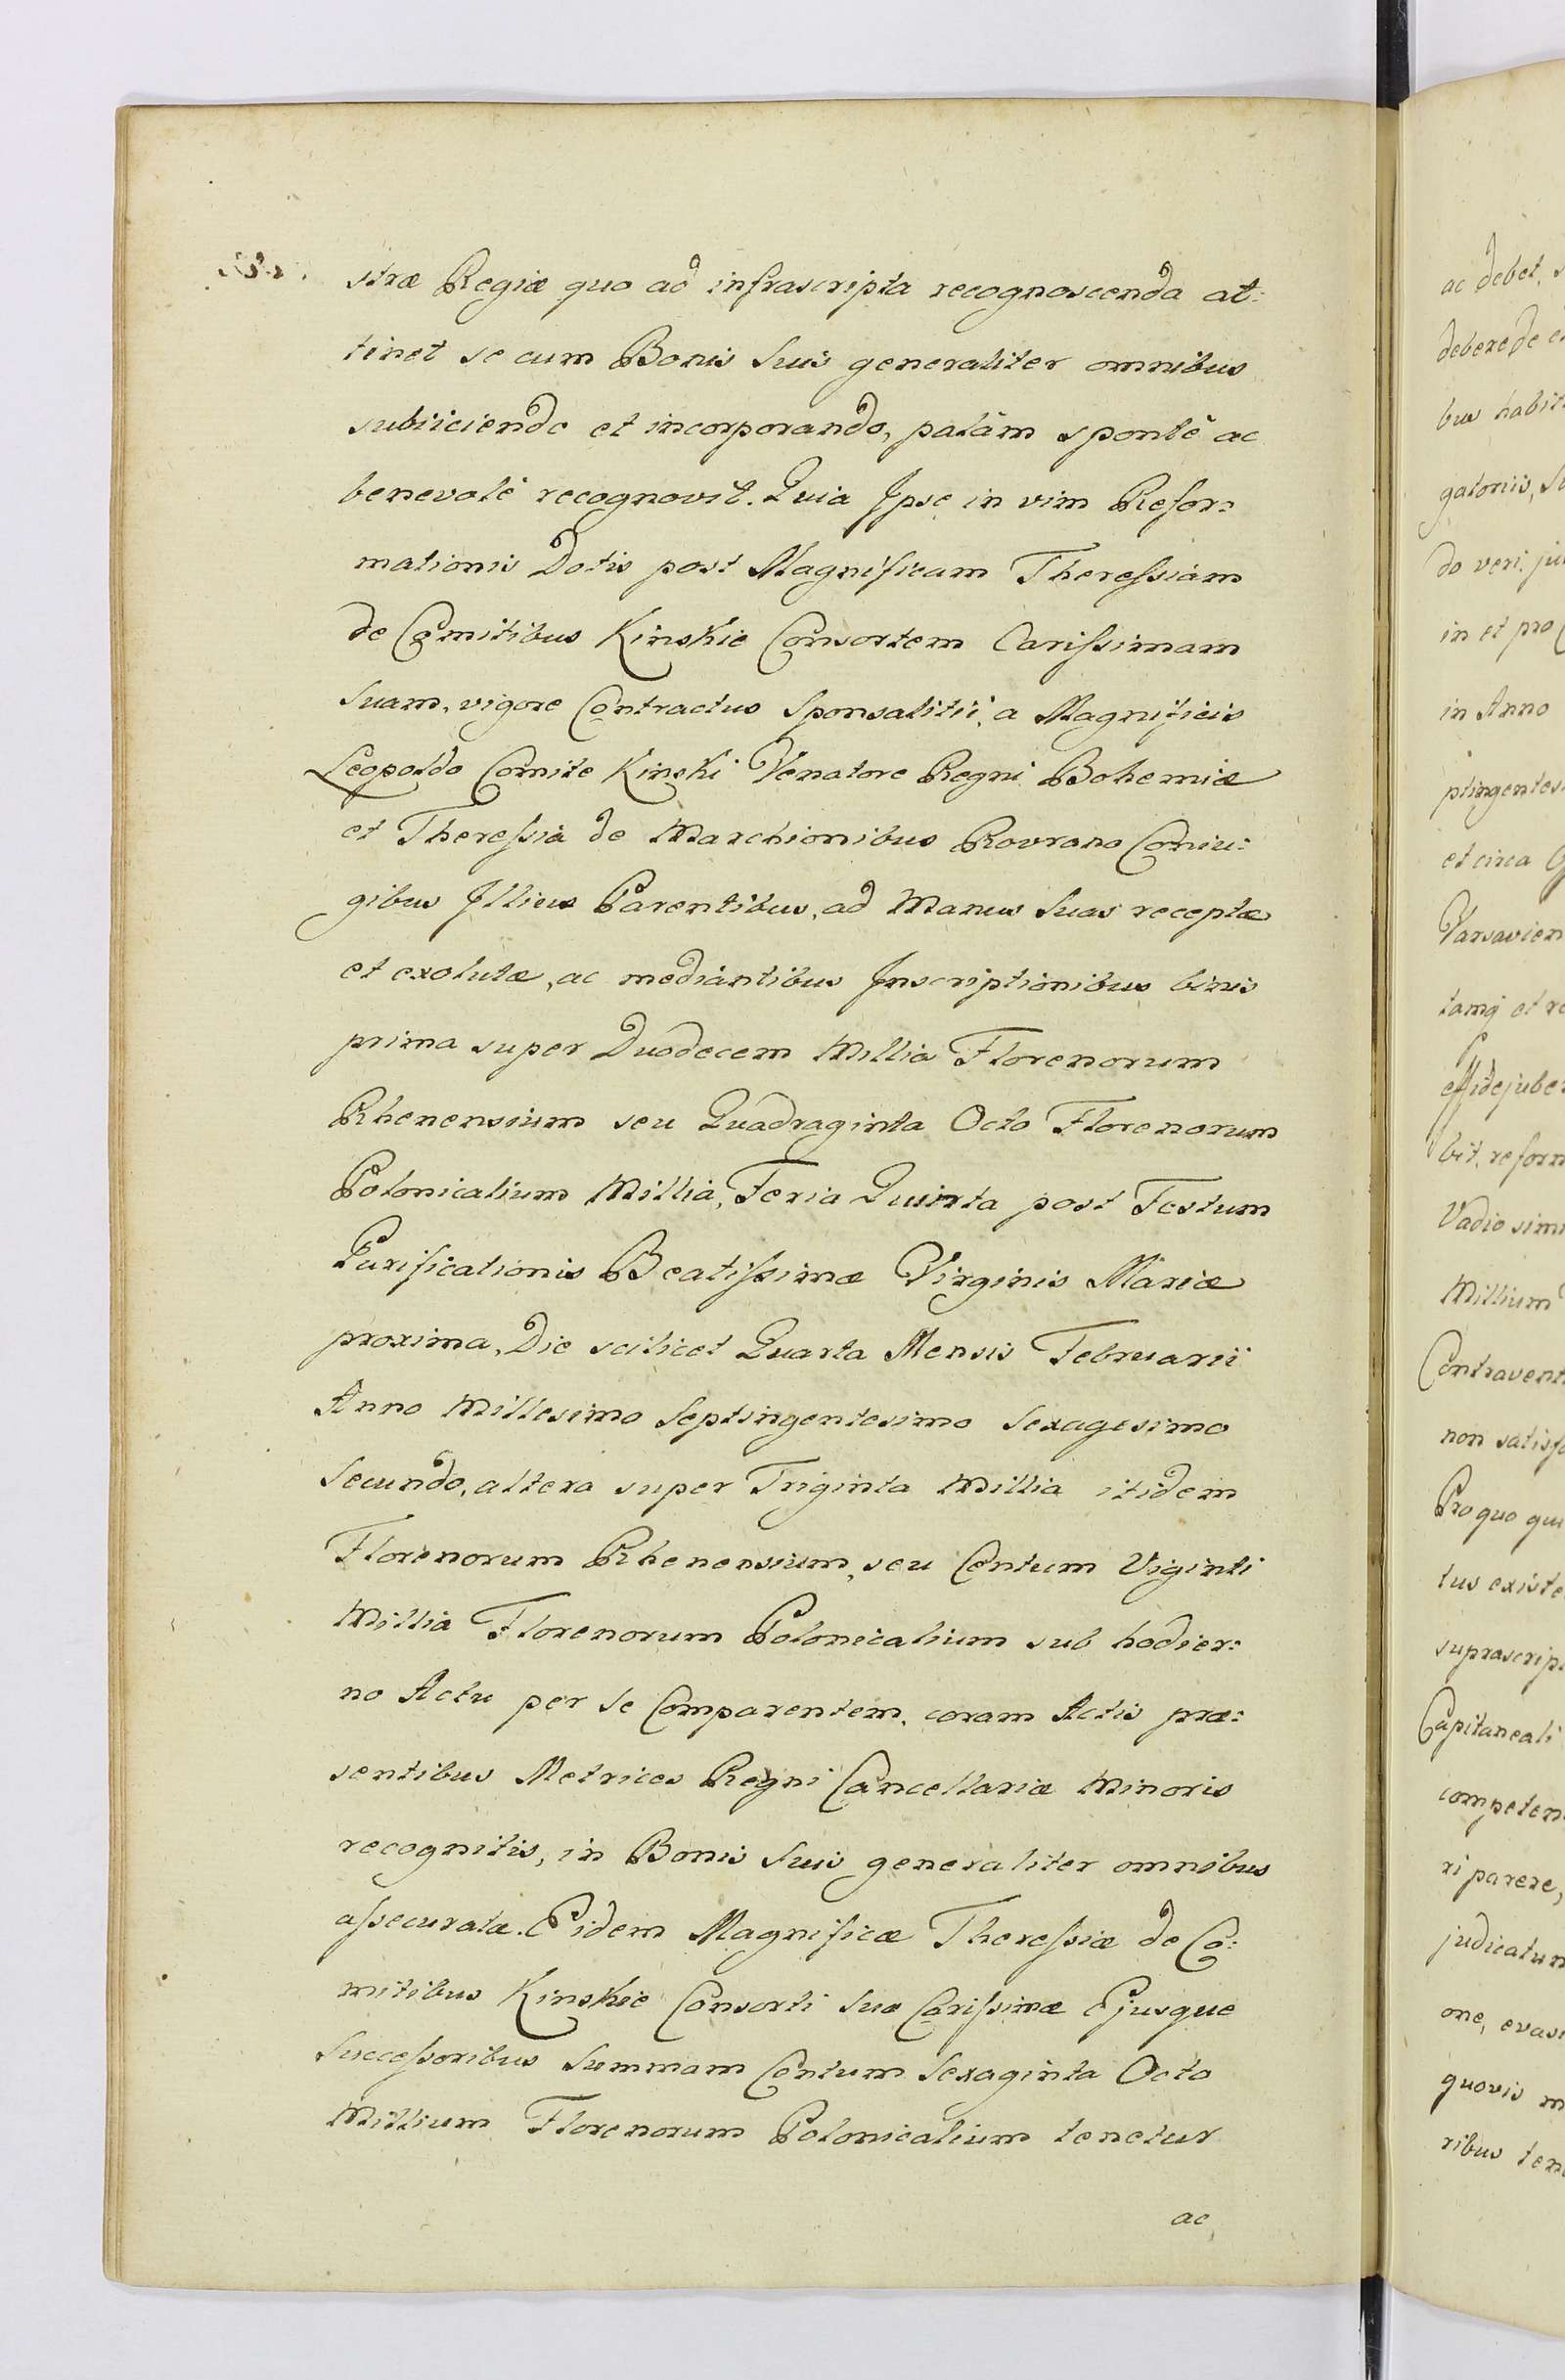 stræ Regiæ quo ad infrascripta recognoscenda at:
tinet se cum Bonis Suis generaliter omnibus
subiiciendo et incorporando, palàm spontè ac
benevolè recognovit. Quia Ipse in vim Refor:
mationis Dotis post Magnificam Theressiam
de Comitibus Kinskie Consortem Carissimam
Suam, vigore Contractus Sponsalitii, a Magnificis
Leopoldo Comite Kinski Venatore Regni Bohemiæ
et Theressia de Marchionibus Rovrano Coniu:
gibus Illius Parentibus, ad Manus Suas receptæ
et exolutæ, ac mediantibus Inscriptionibus binis
prima super Duodecem Millia Florenorum
Rhenensium seu Quadraginta Octo Florenorum
Polonicalium Millia, Feria Quinta post Festum
Purificationis Beatissimæ Virginis Mariæ
proxima, Die scilicet Quarta Mensis Februarii
Anno Millesimo Septingentesimo Sexagesimo
Secundo, altera super Triginta Millia itidem
Florenorum Rhenensium, seu Centum Viginti
Millia Florenorum Polonicalium sub hodier:
no Actu per Se Comparentem, coram Actis præ:
sentibus Metrices Regni Cancellariæ Minoris
recognitis, in Bonis Suis generaliter omnibus
assecuratæ. Eidem Magnificæ Theressiæ de Co:
mitibus Kinskie Consorti Suæ Carissimæ Ejusque
Successoribus Summam Centum Sexaginta Octo
Millium Florenorum Polonicalium tenetur
ac
ac debet,
debere de
bus habit
gatoriis,
do veri
in et pro
in Anno
ptingentes
et circa
Varsavien
tamq et
effidejuber
bit, reform
Vadio sim
Millium
Contravent
non satisf
Pro quo
tus existe
suprascrip
Capitaneali
competen
ri parere,
judicatum
one, evasi
quovis m
ribus ten